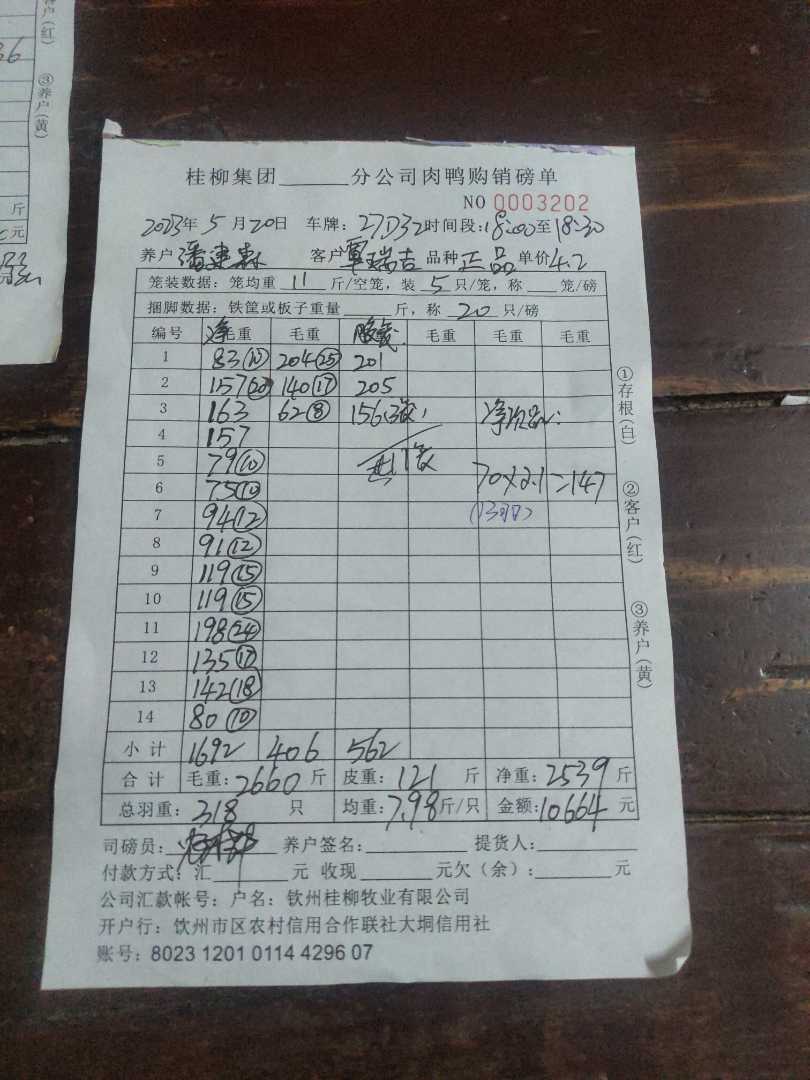 桂柳集团______分公司肉鸭购销磅单
NO 0003202
2023年 5 月 20日 车牌: 27D32 时间段: 18:00至18:30
养户 潘建森 客户 覃瑞吉 品种 正品 单价 4.2
笼装数据: 笼均重 11 斤/空笼, 装 5 只/笼, 称____笼/磅
捆脚数据: 铁筐或板子重量______斤, 称 20 只/磅
编号 净毛重 毛重 毛重 毛重 毛重
1 83(10) 204(25) 201
2 157(20) 140(17) 205
3 163 62(8) 156(3
4 157
5 79(10)
6 75(10) 70×2.1=147
7 94(12)
8 91(12)
9 119(15)
10 119(15)
11 198(24)
12 135(17)
13 142(18)
14 80(10)
小计 1692 406 562
合计 毛重: 2660 斤 皮重: 121 斤 净重: 2539 斤
总羽重: 318 只 均重: 7.98 斤/只 金额: 10664 元
司磅员: 养户签名:________ 提货人:________
付款方式: 汇______元 收现______元欠(余):______元
公司汇款帐号: 户名: 钦州桂柳牧业有限公司
开户行: 钦州市区农村信用合作联社大垌信用社
账号: 8023 1201 0114 4296 07
①存根(白)
②客户(红)
③养户(黄)
户(红)
③养户(黄)
36
斤
元